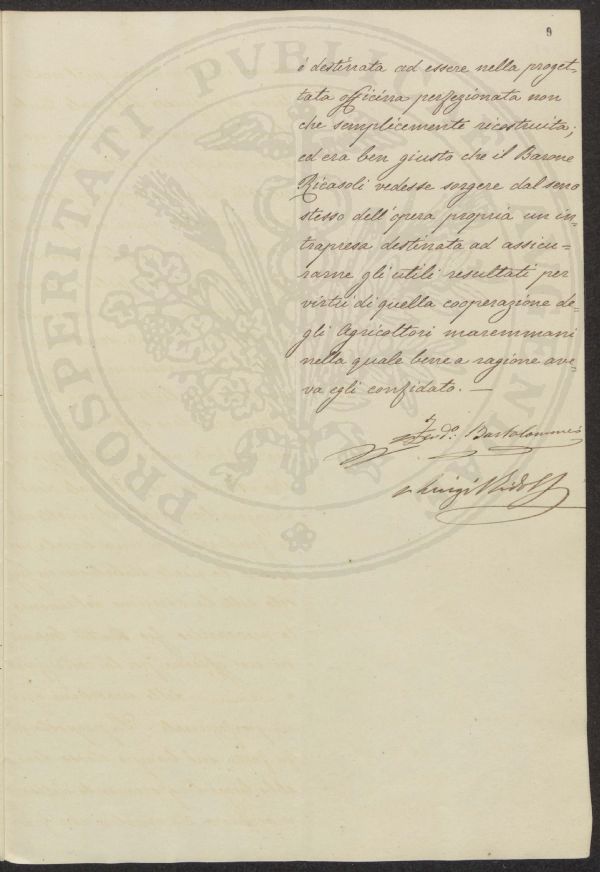 9
è destinata ad essere nella proget=
tata officina perfezionata non
che semplicemente ricostruita;
ed era ben giusto che il Barone
Ricasoli vedesse sorgere dal seno
stesso dell'opera propria un'in=
trapresa destinata ad assicu=
rarne gli utili resultati per
virtù di quella cooperazione de=
gli Agricoltori maremmani
nella quale bene a ragione ave=
va egli confidato. —
Ferd.º Bartolommei
Luigi Ridolfi
PROSPERITATI PVBLI